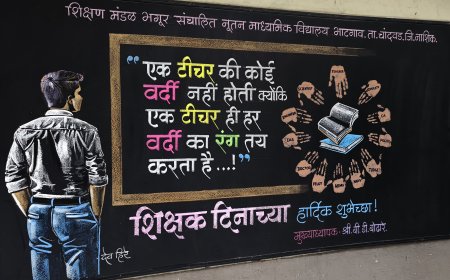 शिक्षण मंडळ भगूर संचालित नूतन माध्यमिक विद्यालय भाटगाव. ता. चांदवड. जि. नाशिक.
"एक टीचर की कोई
वर्दी नहीं होती क्योंकि
एक टीचर ही हर
वर्दी का रंग तय
करता है...!"
शिक्षक दिनाच्या हार्दिक शुभेच्छा!
मुख्याध्यापक: श्री. बी. डी.
देव हिरे